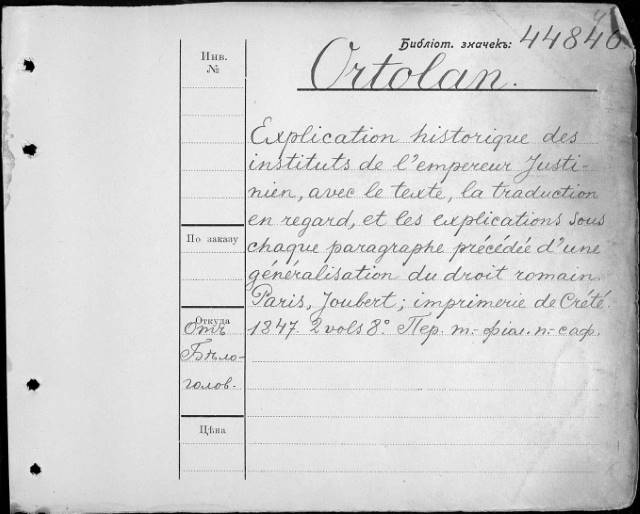 Библіот. значекъ: 44840
Ortolan.
Инв.
№
Explication historique des
instituts de l'empereur Justi-
nien, avec le texte, la traduction
en regard, et les explications sous
chaque paragraphe précédée d'une
généralisation du droit romain.
Paris, Joubert; imprimerie de Crété.
1847. 2 vols 8º Пер. т.- фіол. п.- саф.
По заказу
Откуда
Отъ
Бѣло-
голов.
Цѣна